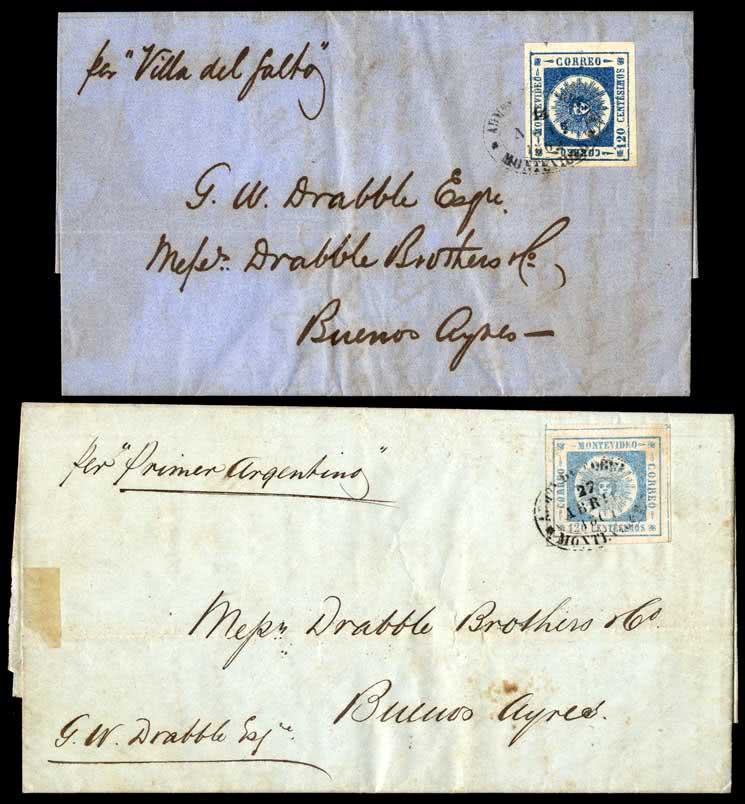 per "Villa del Salto"
CORREO
MONTEVIDEO
120 CENTÉSIMOS
CORREO
MONTEVIDEO
G. W. Drabble Esqre.
Messrs. Drabble Brothers & Co,
Buenos Ayres —
per "Primer Argentino"
MONTEVIDEO
CORREO
CORREO
120 CENTÉSIMOS
27
ABRIL
Messrs Drabble Brothers & Co.
Buenos Ayres.
G. W. Drabble Esqre.